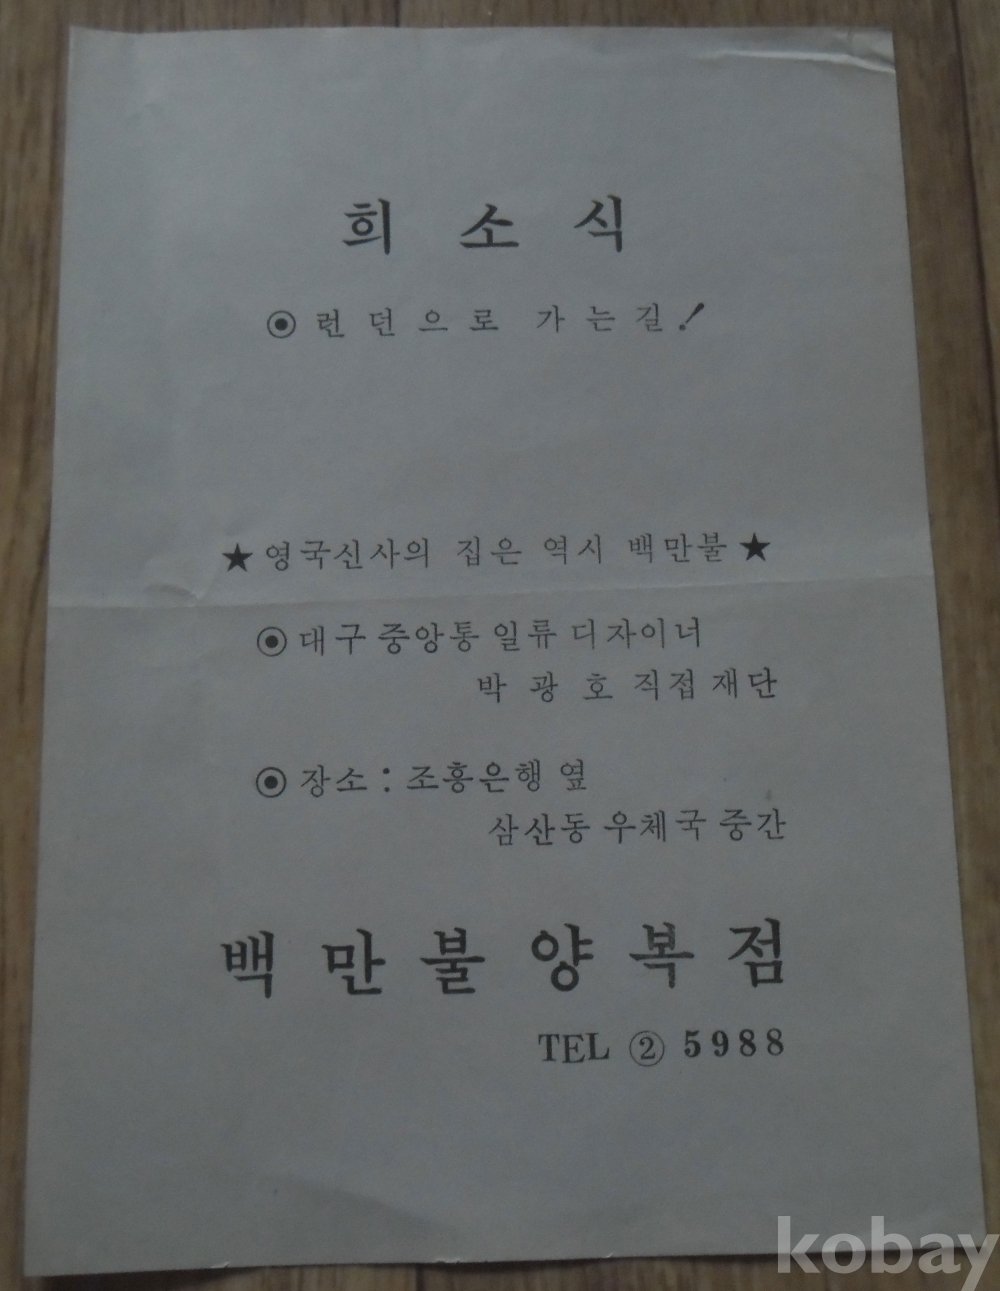 희 소 식
◉ 런 던 으 로 가 는 길 !
★ 영국신사의 집은 역시 백만불 ★
◉ 대구 중앙통 일류 디자이너
박 광 호 직접 재단
◉ 장소 : 조흥은행 옆
삼산동 우체국 중간
백 만 불 양 복 점
TEL ② 5988
kobay